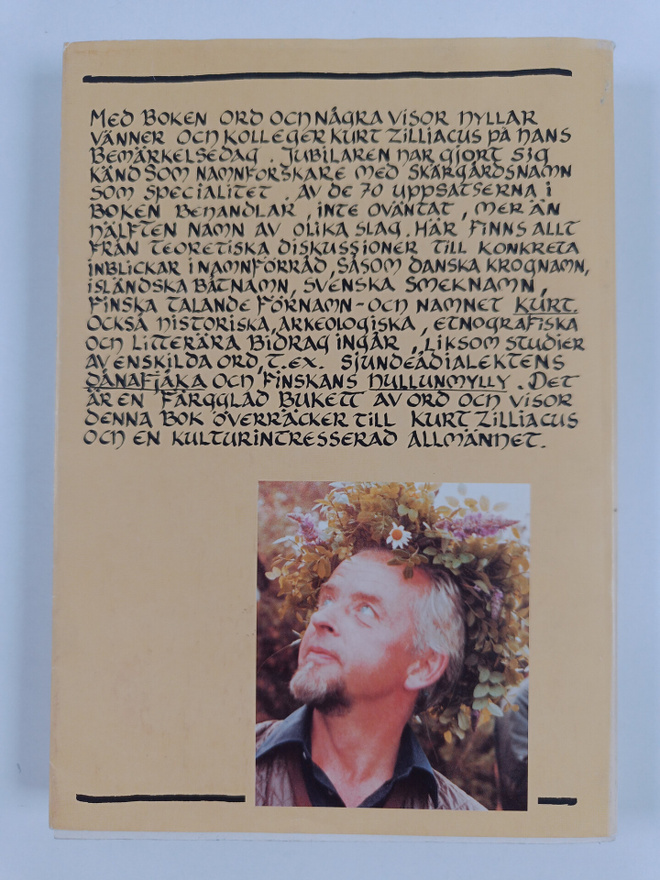 MED BOKEN ORD OCH NÅGRA VISOR HYLLAR
VÄNNER OCH KOLLEGER KURT ZILLIACUS PÅ HANS
BEMÄRKELSEDAG. JUBILAREN HAR GJORT SIG
KÄND SOM NAMNFORSKARE MED SKÄRGÅRDSNAMN
SOM SPECIALITET. AV DE 70 UPPSATSERNA I
BOKEN BEHANDLAR, INTE OVÄNTAT, MER ÄN
HÄLFTEN NAMN AV OLIKA SLAG. HÄR FINNS ALLT
FRÅN TEORETISKA DISKUSSIONER TILL KONKRETA
INBLICKAR I NAMNFÖRRÅD, SÅSOM DANSKA KROGNAMN,
ISLÄNDSKA BÅTNAMN, SVENSKA SMEKNAMN,
FINSKA TALANDE FÖRNAMN - OCH NAMNET KURT.
OCKSÅ HISTORISKA, ARKEOLOGISKA, ETNOGRAFISKA
OCH LITTERÄRA BIDRAG INGÅR, LIKSOM STUDIER
AV ENSKILDA ORD, T.EX. SJUNDEÅDIALEKTENS
DANAFJÄKA OCH FINSKANS HULLUNMYLLY. DET
ÄR EN FÄRGGLAD BUKETT AV ORD OCH VISOR
DENNA BOK ÖVERRÄCKER TILL KURT ZILLIACUS
OCH EN KULTURINTRESSERAD ALLMÄNHET.